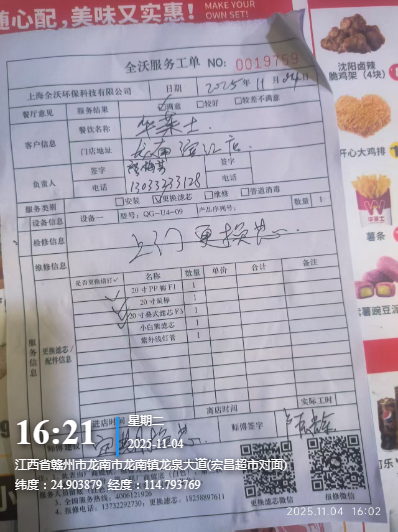 随心配,美味又实惠!
MAKE YOUR
OWN SET!
全沃服务工单 NO: 0019759
上海全沃环保科技有限公司 日期 2025年11月04日
餐厅意见 服务结果 满意 较好 较差不满意
客户信息 餐饮名称 华莱士
门店地址 龙南滨江店
负责人 签字 签字
电话 13033233128 电话
服务类别 安装 更换滤芯 维修 管道消毒
设备信息 设备一 型号: QG-U4-09 产品序列号: 数量 1
检修信息 上门更换滤芯.
维修信息
服务信息 更换滤芯/配件信息
是否更换填√ 名称 数量 单价 合计 备注
20寸PP棉F1 1
20寸炭棒 1
20寸叠式滤芯F3 1
小白熊滤芯 1
紫外线灯管 1
进店时间 离店时间 实际工时
签字
更换滤芯微信 维修微信
4、维修电话: 13732292730, 18258891611
16:21
星期二
2025-11-04
江西省赣州市龙南市龙南镇龙泉大道(宏昌超市对面)
纬度:24.903879 经度:114.793769
2025.11.04 16:02
沈阳卤辣
脆鸡架(4块)
开心大鸡排
薯条